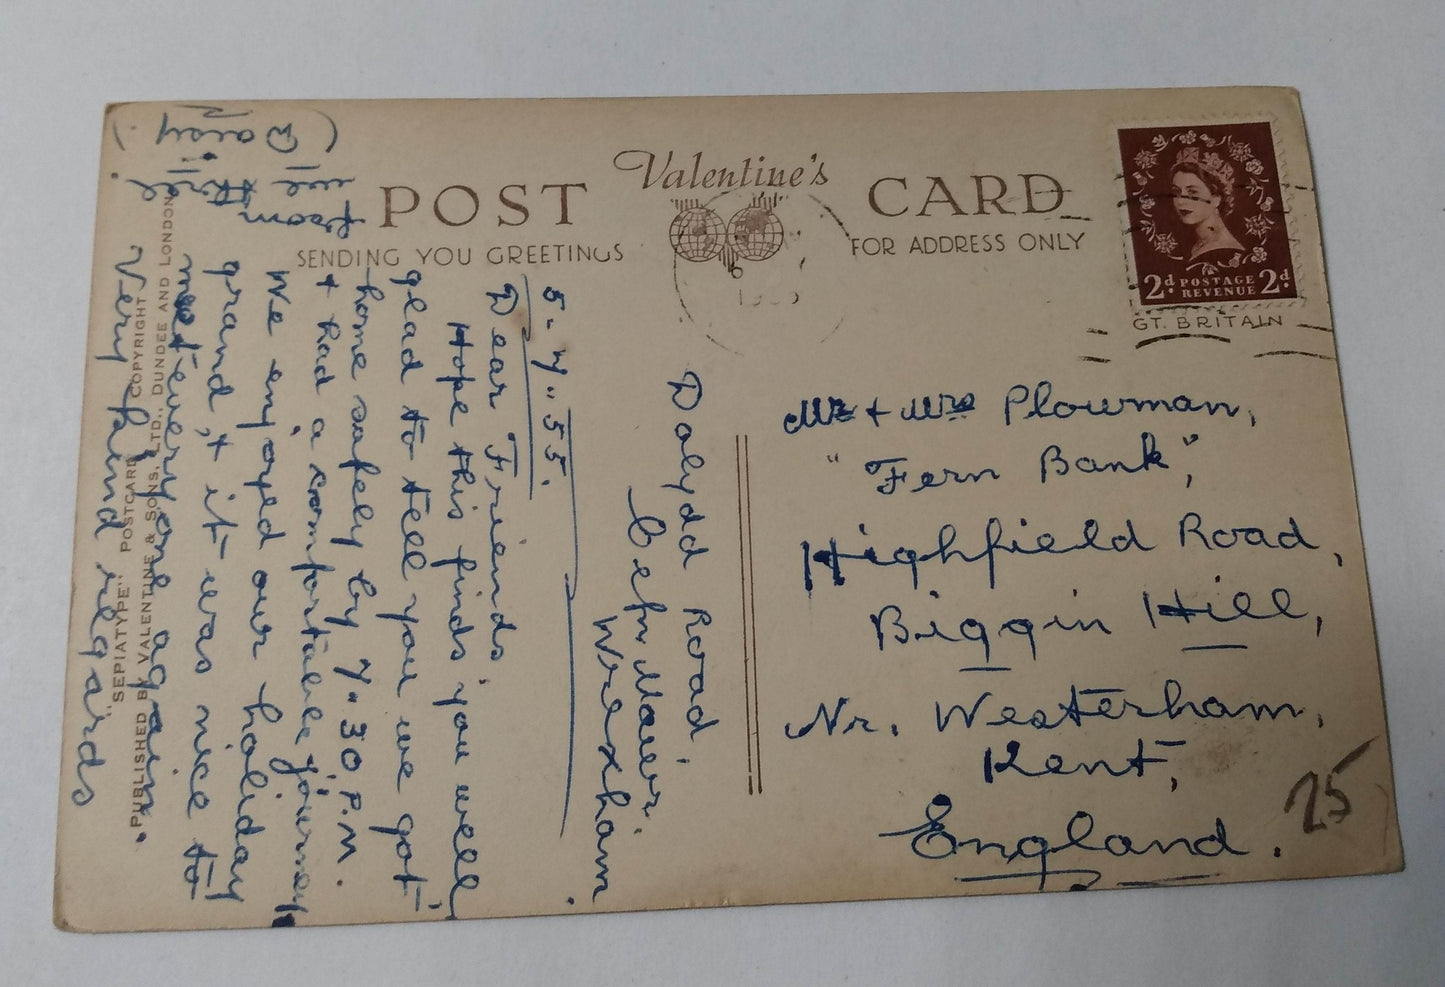 Valentine's
POST CARD
SENDING YOU GREETINGS
FOR ADDRESS ONLY
2d. POSTAGE REVENUE 2d.
GT. BRITAIN
Dolydd Road.
Cefn Mawr.
Wrexham.
5-7"55.
Dear Friends,
Hope this finds you well
glad to tell you we got
home safely by 7"30 P.M.
+ had a comfortable journey
We enjoyed our holiday
grand, + it was nice to
meet everyone again.
Very kind regards
Mr + Mrs Plowman,
"Fern Bank",
Highfield Road,
Biggin Hill,
Nr. Westerham,
Kent,
England.
25
"SEPIATYPE" POSTCARD COPYRIGHT
PUBLISHED BY VALENTINE & SONS, LTD., DUNDEE AND LONDON